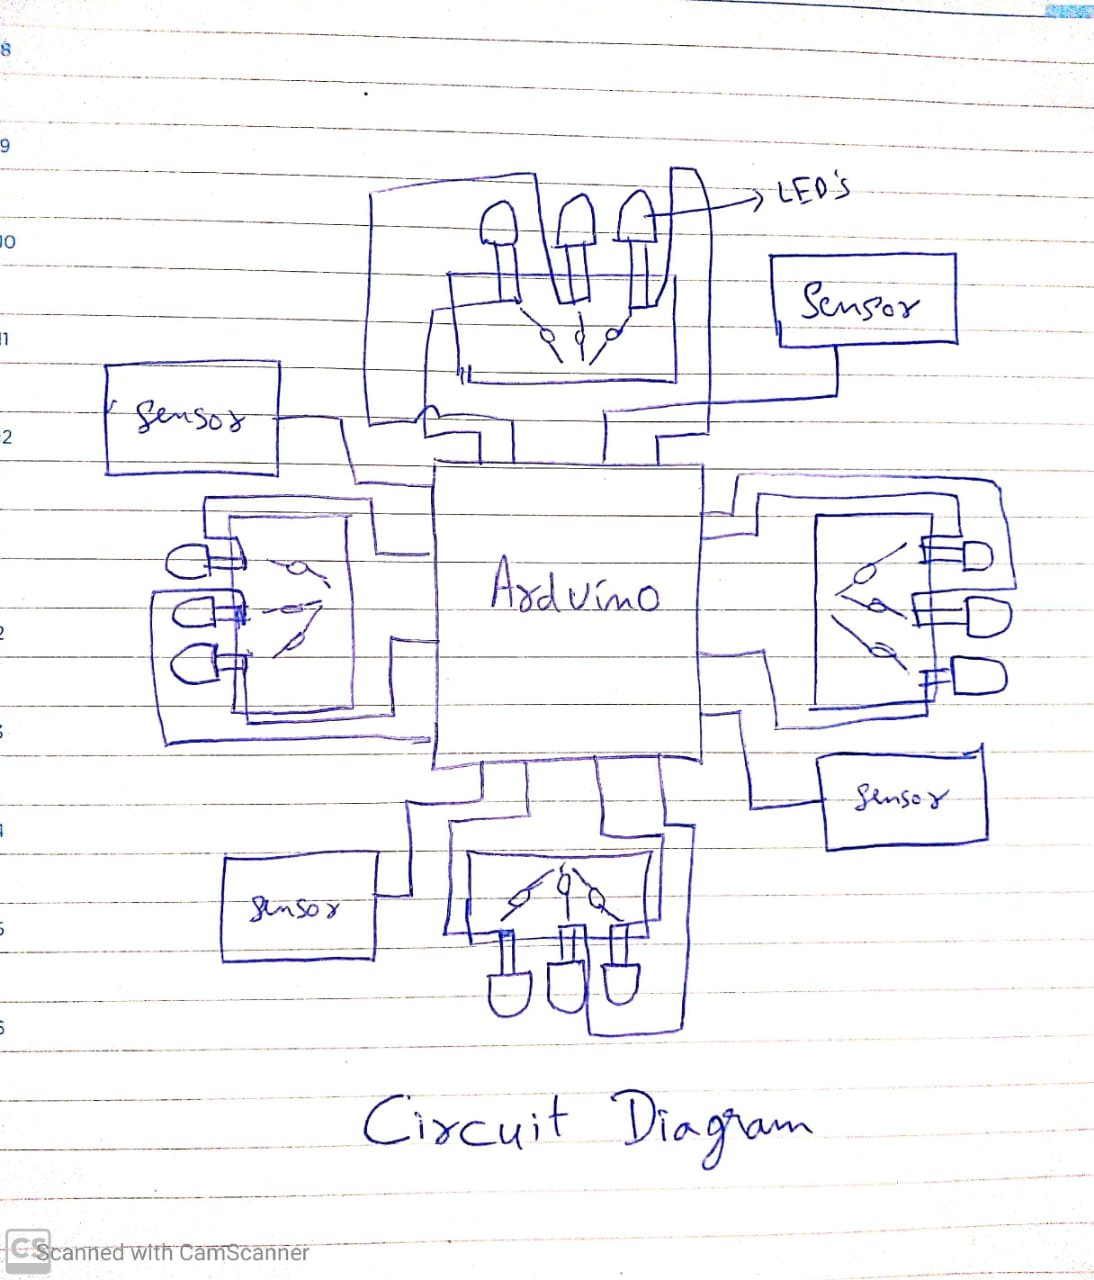 8
9
10
11
12
2
3
4
5
6
LED's
Sensor
Sensor
Arduino
Sensor
Sensor
Circuit Diagram
CS Scanned with CamScanner